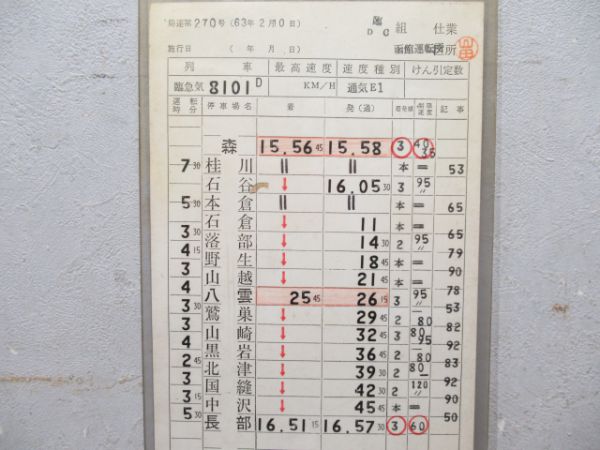 局運第270号(63年2月10日) 臨DC組 仕業
施行日 ( 年 月 日) 函館運転所
列車 最高速度 速度種別 けん引定数
臨急気 8101D KM/H 通気E1
運転時分 停車場名 着 発(通) 着発線 制限速度 記事
森 15.56 45 15.58 3 40 35
7 30 桂川 〃 〃 本 = 53
石谷 ↓ 16.05 30 3 95 〃
5 30 本倉 〃 〃 本 = 65
石倉 ↓ 11 本 = 65
3 30 落部 ↓ 14 30 2 95 〃 79
4 15 野生 ↓ 18 45 本 = 90
3 山越 ↓ 21 45 本 = 78
4 30 八雲 25 45 26 15 3 95 〃 53
3 30 鷲巣 ↓ 29 45 2 80 82
3 山崎 ↓ 32 45 3 80 95 92
4 黒岩 ↓ 36 45 2 80 83
2 45 北津 ↓ 39 30 2 80 92
3 国縫 ↓ 42 30 2 120 〃 90
3 15 中沢 ↓ 45 45 本 = 50
5 30 長部 16.51 15 16.57 30 3 60